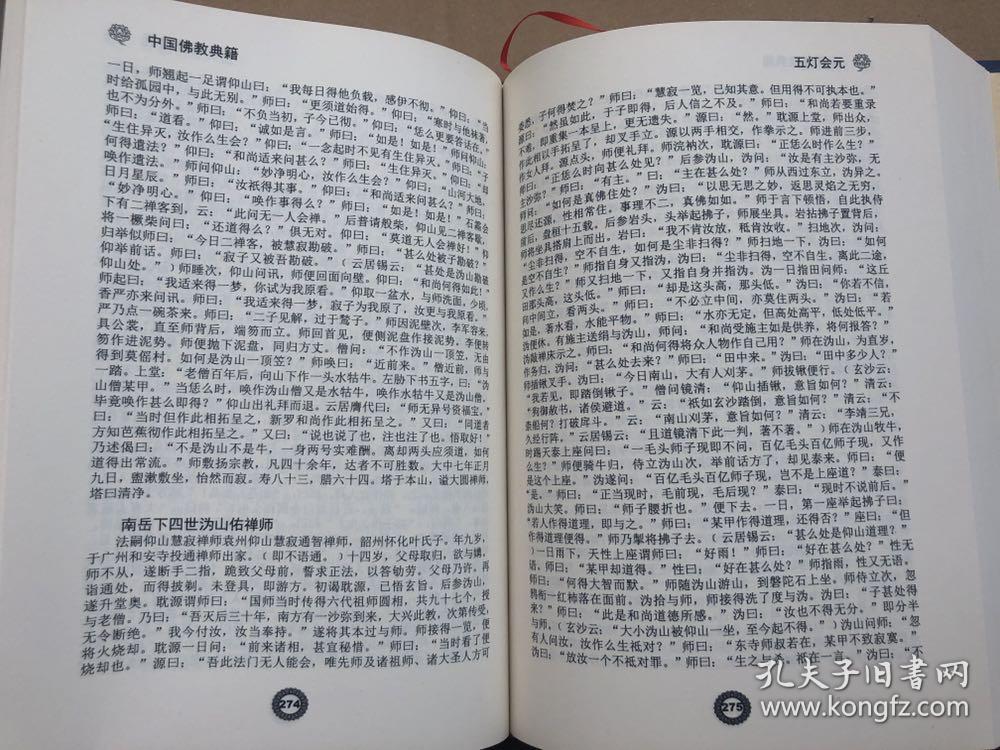 中国佛教典籍
一日，师翘起一足谓仰山曰：“我每日得他负载，感伊不彻。”仰曰：“当
时给孤园中，与此无别。”师曰：“更须道始得。”仰曰：“寒时与他袜著，
也不为分外。”师曰：“不负当初，子今已彻。”仰曰：“恁么更要答话在。”
师曰：“道看。”仰曰：“诚如是言。”师曰：“如是！如是！”师问仰山：
“生住异灭，汝作么生会？”仰曰：“一念起时不见有生住异灭。”师曰：“子
何得遣法？”仰曰：“和尚适来问甚么？”师曰：“生住异灭。”仰曰：“却
唤作遣法。”师问仰山：“妙净明心，汝作么生会？”仰曰：“山河大地，
日月星辰。”师曰：“汝祇得其事。”仰曰：“和尚适来问甚么？”师曰：
“妙净明心。”仰曰：“唤作事得么？”师曰：“如是！如是！”石霜会
下有二禅客到，云：“此间无一人会禅。”后普请般柴，仰山见二禅客歇，
将一橛柴问曰：“还道得么？”俱无对。仰曰：“莫道无人会禅好！”仰
归举似师曰：“今日二禅客，被慧寂勘破。”师曰：“甚么处被子勘破？”
仰举前话。师曰：“寂子又被吾勘破。”（云居锡云：“甚处是沩山勘破
仰山处。”）师睡次，仰山问讯，师便回面向壁。仰曰：“和尚何得如此！”
师起曰：“我适来得一梦，你试为我原看。”仰取一盆水，与师洗面，少顷，
香严亦来问讯。师曰：“我适来得一梦，寂子为我原了，汝更与我原看。”
严乃点一碗茶来。师曰：“二子见解，过于鹙子。”师因泥壁次，李军容来，
具公裳，直至师背后，端笏而立。师回首见，便侧泥盘作接泥势，李便转
笏作进泥势。师便抛下泥盘，同归方丈。僧问：“不作沩山一顶笠，无由
得到莫徭村。如何是沩山一顶笠？”师唤曰：“近前来。”僧近前，师与
一踏。上堂：“老僧百年后，向山下作一头水牯牛。左胁下书五字，曰：‘沩
山僧某甲。’当恁么时，唤作沩山僧又是水牯牛，唤作水牯牛又是沩山僧。
毕竟唤作甚么即得？”仰山出礼拜而退。云居膺代曰：“师无异号资福宝。”
曰：“当时但作此相拓呈之，新罗和尚作此相拓呈之。”又曰：“同道者
方知芭蕉彻作此相拓呈之。”又曰：“说也说了也，注也注了也。悟取好！”
乃述偈曰：“不是沩山不是牛，一身两号实难酬。离却两头应须道，如何
道得出常流。”师敷扬宗教，凡四十余年，达者不可胜数。大中七年正月
九日，盥漱敷坐，怡然而寂。寿八十三，腊六十四。塔于本山，谥大圆禅师，
塔曰清净。
南岳下四世沩山佑禅师
法嗣仰山慧寂禅师袁州仰山慧寂通智禅师，韶州怀化叶氏子。年九岁，
于广州和安寺投通禅师出家。（即不语通。）十四岁，父母取归，欲与媾，
师不从，遂断手二指，跪致父母前，誓求正法，以答劬劳。父母乃许，再
诣通处，而得披剃。未登具，即游方。初谒耽源，已悟玄旨。后参沩山，
遂升堂奥。耽源谓师曰：“国师当时传得六代祖师圆相，共九十七个，授
与老僧。乃曰：‘吾灭后三十年，南方有一沙弥到来，大兴此教，次第传受，
无令断绝。’我今付汝，汝当奉持。”遂将其本过与师。师接得一览，便
将火烧却。耽源一日问：“前来诸相，甚宜秘惜。”师曰：“当时看了便
烧却也。”源曰：“吾此法门无人能会，唯先师及诸祖师、诸大圣人方可
274
五灯会元
委悉，子何得焚之？”师曰：“慧寂一览，已知其意。但用得不可执本也。”
源曰：“然虽如此，于子即得，后人信之不及。”师曰：“和尚若要重录
不难，即重集一本呈上，更无遗失。”源曰：“然。”耽源上堂，师出众，
作此相以手拓呈了，却叉手立。源以两手相交，作拳示之。师进前三步，
作女人拜。源点头，师便礼拜。师浣衲次，耽源曰：“正恁么时作么生？”
师曰：“正恁么时向甚么处见？”后参沩山，沩问：“汝是有主沙弥，无
主沙弥？”师曰：“有主。”曰：“主在甚么处？”师从西过东立，沩异之。
师问：“如何是真佛住处？”沩曰：“以思无思之妙，返思灵焰之无穷，
思尽还源，性相常住。事理不二，真佛如如。”师于言下顿悟，自此执侍
前后，盘桓十五载。后参岩头，头举起拂子，师展坐具。岩拈拂子置背后，
师将坐具搭肩上而出。岩曰：“我不肯汝放，秖肯汝收。”扫地次，沩问：
“尘非扫得，空不自生，如何是尘非扫得？”师扫地一下，沩曰：“如何
是空不自生？”师指自身又指沩。沩曰：“尘非扫得，空不自生。离此二途，
又作么生？”师又扫地一下，又指自身并指沩。沩一日指田问师：“这丘
田那头高，这头低。”师曰：“却是这头高，那头低。”沩曰：“你若不信，
向中间立，看两头。”师曰：“不必立中间，亦莫住两头。”沩曰：“若
如是，著水看，水能平物。”师曰：“水亦无定，但高处高平，低处低平。”
沩便休。有施主送绢与沩山，师问：“和尚受施主如是供养，将何报答？”
沩敲禅床示之。师曰：“和尚何得将众人物作自己用？”师在沩山，为直岁，
作务归，沩问：“甚么处去来？”师曰：“田中来。”沩曰：“田中多少人？”
师插锹叉手。沩曰：“今日南山，大有人刈茅。”师拔锹便行。（玄沙云：
“我若见，即踏倒锹子。”僧问镜清：“仰山插锹，意旨如何？”清云：
“狗御赦书，诸侯避道。”云：“祇如玄沙踏倒，意旨如何？”清云：“不
柰船何？打破戽斗。”云：“南山刈茅，意旨如何？”清云：“李靖三兄，
久经行阵。”云居锡云：“且道镜清下此一判，著不著。”）师在沩山牧牛，
时踢天泰上座问曰：“一毛头师子现即不问，百亿毛头百亿师子现，又作
么生？”师便骑牛归，侍立沩山次，举前话方了，却见泰来。师曰：“便
是这个上座。”沩遂问：“百亿毛头百亿师子现，岂不是上座道？”泰曰：
“是。”师曰：“正当现时，毛前现，毛后现？”泰曰：“现时不说前后。”
沩山大笑。师曰：“师子腰折也。”便下去。一日，第一座举起拂子曰：
“若人作得道理，即与之。”师曰：“某甲作得道理，还得否？”座曰：“但
作得道理便得。”师乃掣将拂子去。（云居锡云：“甚么处是仰山道理？”
）一日雨下，天性上座谓师曰：“好雨！”师曰：“好在甚么处？”性无
语。师曰：“某甲却道得。”性曰：“好在甚么处？”师指雨，性又无语。
师曰：“何得大智而默。”师随沩山游山，到磐陀石上坐。师侍立次，忽
鸦衔一红柿落在面前。沩拾与师，师接得洗了度与沩。沩曰：“子甚处得
来？”师曰：“此是和尚道德所感。”沩曰：“汝也不得无分。”即分半
与师，（玄沙云：“大小沩山被仰山一坐，至今起不得。”）沩山问师：“忽
有人问汝，汝作么生祗对？”师曰：“东寺师叔若在，某甲不致寂寞。”
沩曰：“放汝一个不祗对罪。”师曰：“生之与杀，祇在一言。”沩曰：“不
275
孔夫子旧书网
www.kongfz.com